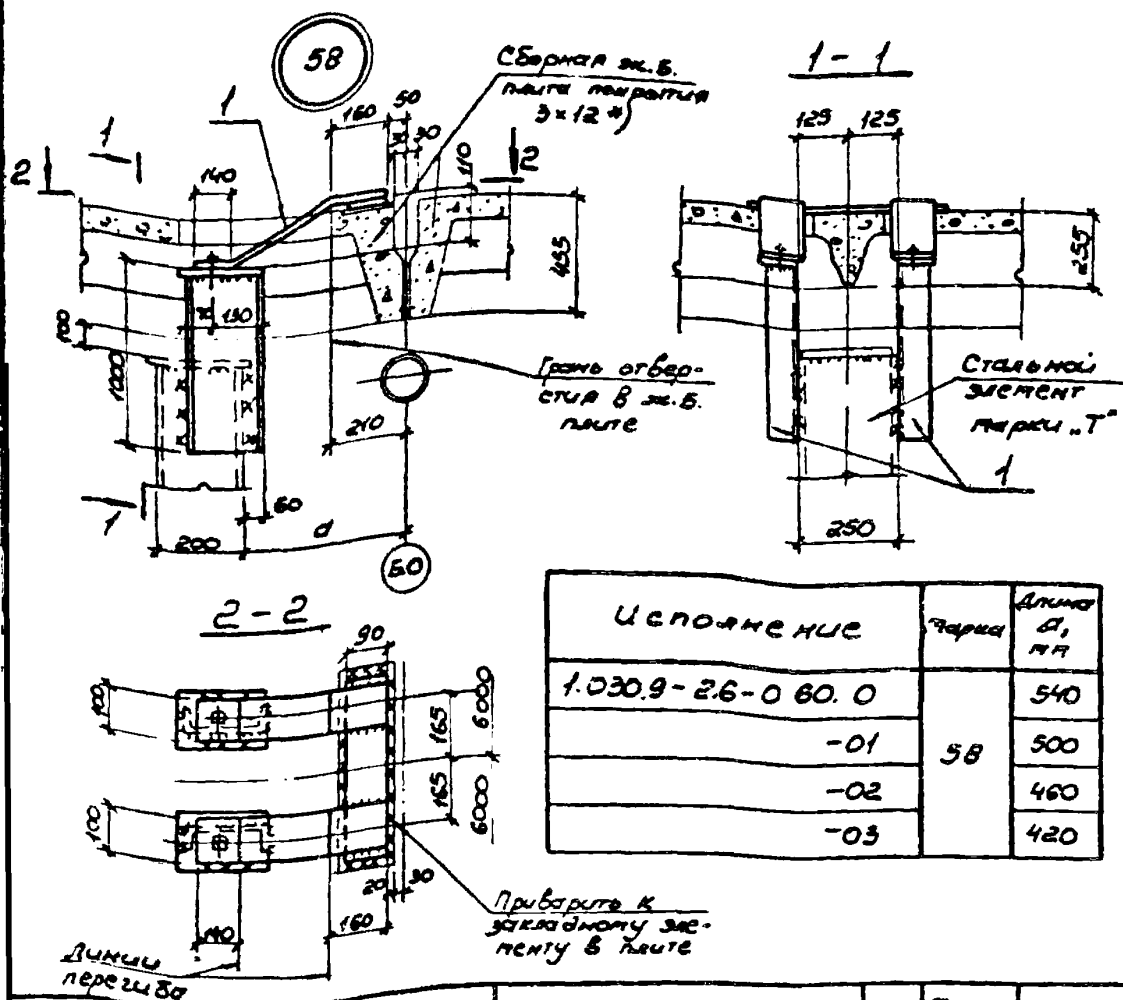 58
1
Сборная ж.б.
плита покрытия
3×12 *)
160
50
30
110
1
2
2
140
455
130
100
1000
Грань отвер-
стия в ж.б.
плите
210
60
1
200
d
Б.0
1-1
125
125
255
Стальной
элемент
марки „Т"
1
250
2-2
90
100
165
6000
165
6000
100
20
30
140
160
Приварить к
закладному эле-
менту в плите
Линии
перегиба
Исполнение
Марка
Длина
d,
мм
1.030.9-2.6-0 60.0
540
-01
58
500
-02
460
-03
420